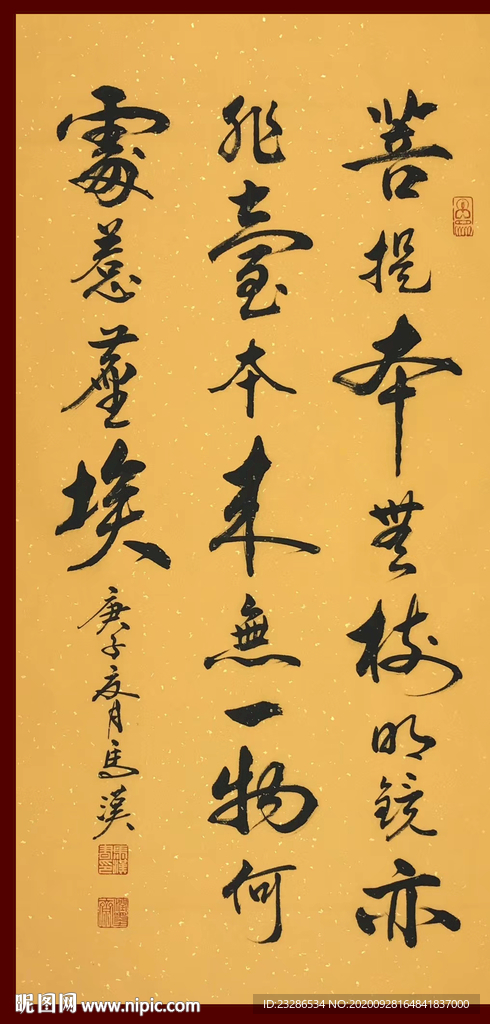 菩提本無樹明鏡亦
非臺本來無一物何
處惹塵埃
庚子夏月馬漢
昵图网 www.nipic.com
ID:23286534 NO:20200928164841837000